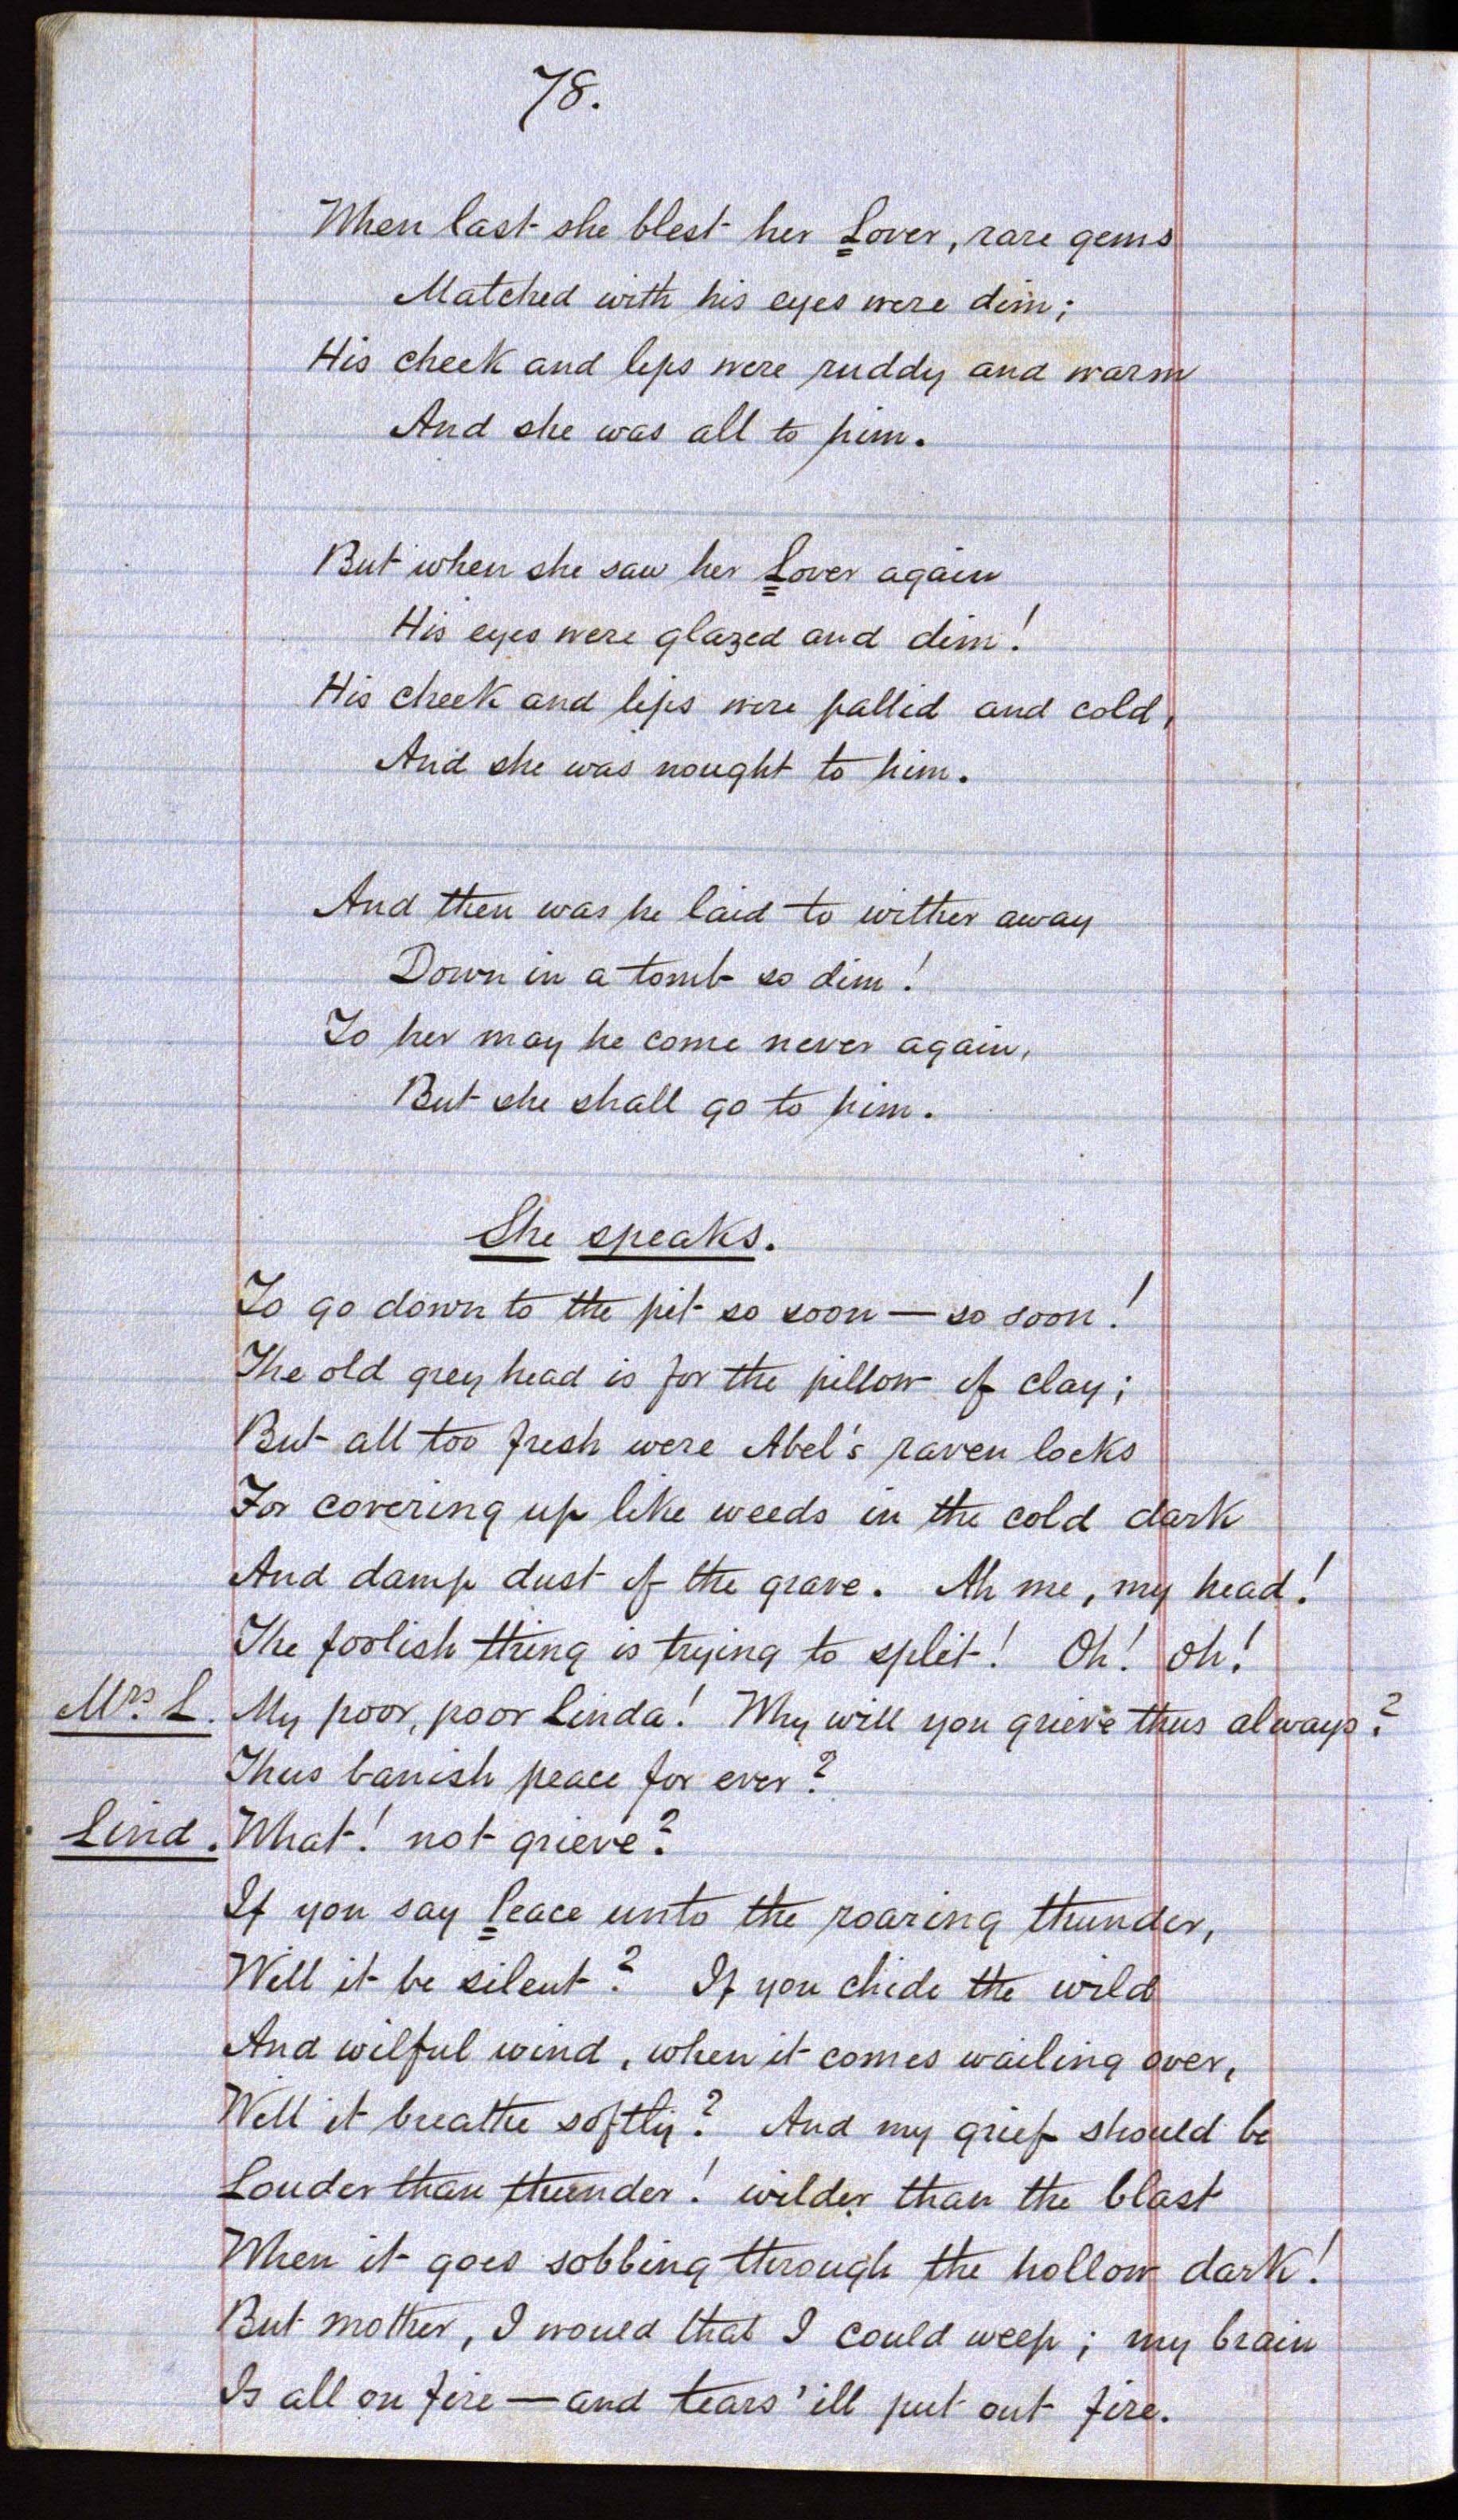 78.
When last she blest her Lover, rare gems
Matched with his eyes were dim;
His cheek and lips were ruddy and warm
And she was all to him.
But when she saw her Lover again
His eyes were glazed and dim!
His cheek and lips were pallid and cold,
And she was nought to him.
And then was he laid to wither away
Down in a tomb so dim!
To her may he come never again,
But she shall go to him.
She speaks.
To go down to the pit so soon — so soon!
The old grey head is for the pillow of clay;
But all too fresh were Abel's raven locks
For covering up like weeds in the cold dark
And damp dust of the grave. Ah me, my head!
The foolish thing is trying to split! Oh! oh!
Mrs L. My poor, poor Linda! Why will you grieve thus always?
Thus banish peace for ever?
Lind. What! not grieve?
If you say Peace unto the roaring thunder,
Will it be silent? If you chide the wild
And wilful wind, when it comes wailing over,
Will it breathe softly? And my grief should be
Louder than thunder! wilder than the blast
When it goes sobbing through the hollow dark!
But mother, I would that I could weep; my brain
Is all on fire — and tears 'ill put out fire.